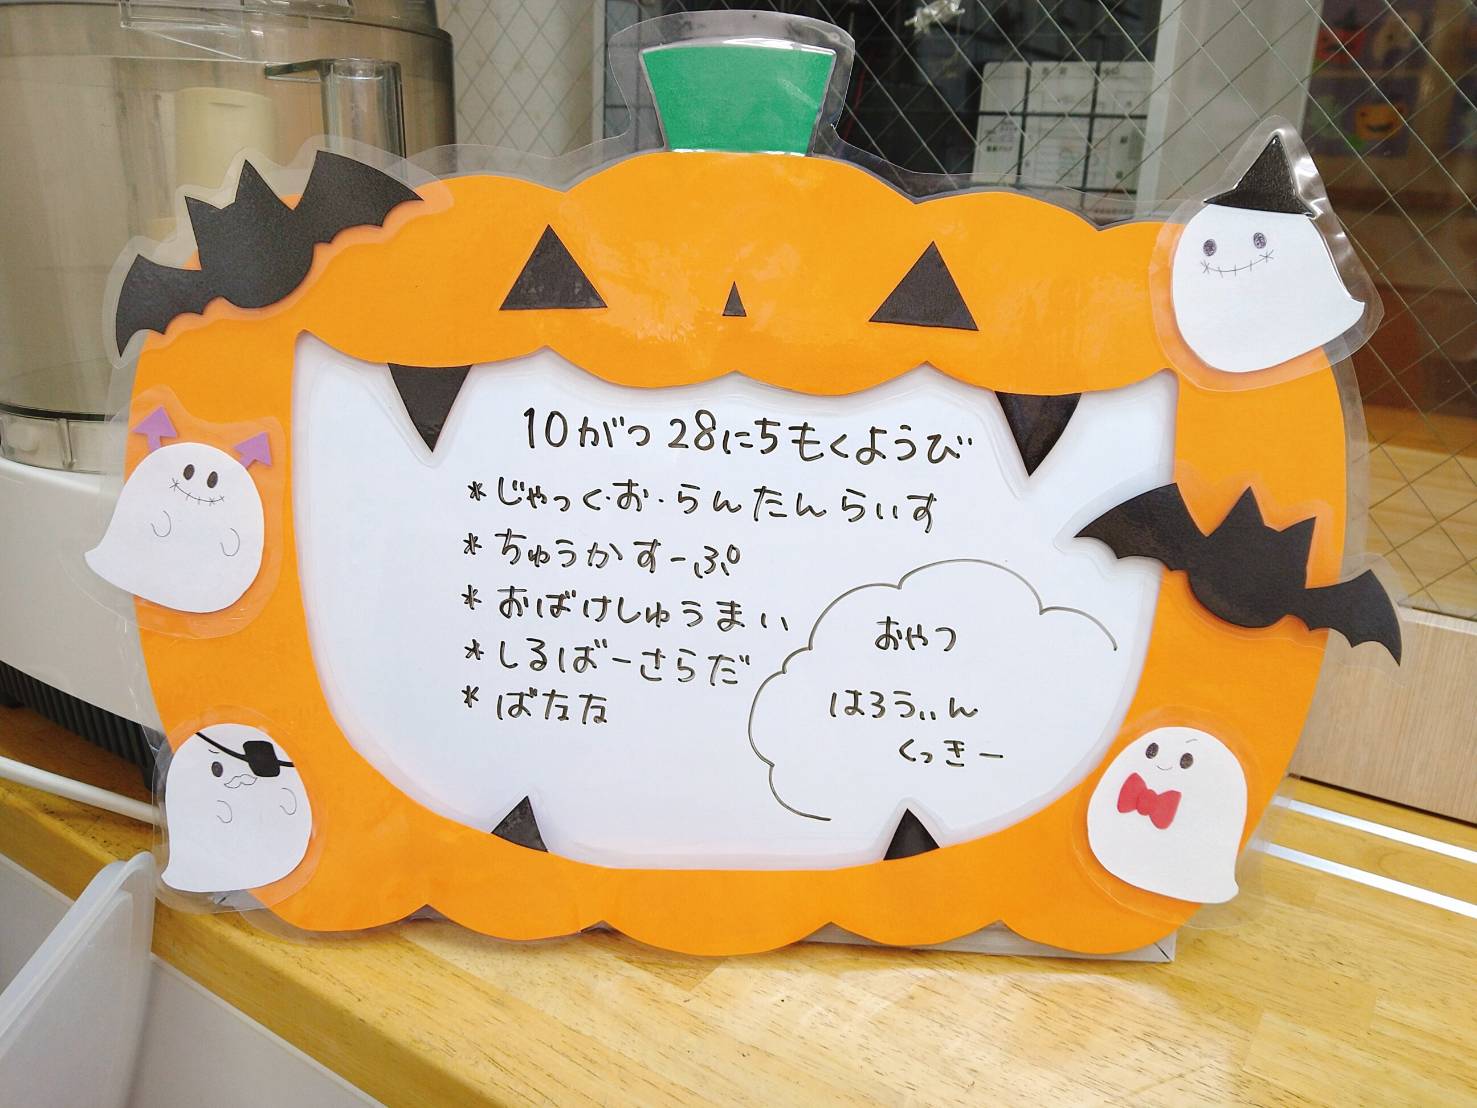 10がつ28にちもくようび
*じゃっく・お・らんたんらいす
*ちゅうかすーぷ
*おばけしゅうまい
*しるばーさらだ
*ばなな
おやつ
はろうぃん
くっきー